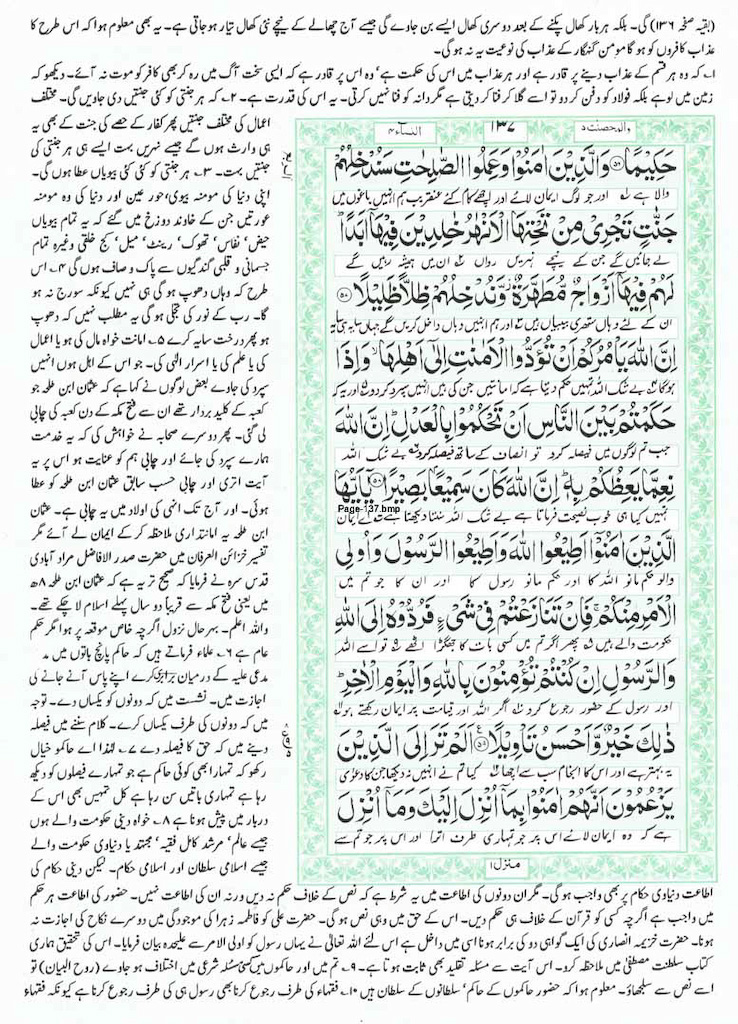 (بقیہ صفحہ ۱۳۶) گی۔ بلکہ ہر بار کھال پکنے کے بعد دوسری کھال ایسے بن جاوے گی جیسے آج چھالے کے نیچے نئی کھال تیار ہو جاتی ہے۔ یہ بھی معلوم ہوا کہ اس طرح کا
عذاب کافروں کو ہو گا مومن گنہگار کے عذاب کی نوعیت یہ نہ ہو گی۔
۱۔ کہ وہ ہر قسم کے عذاب دینے پر قادر ہے اور ہر عذاب میں اس کی حکمت ہے' وہ اس پر قادر ہے کہ ایسی سخت آگ میں رہ کر بھی کافر کو موت نہ آئے۔ دیکھو کہ
زمین میں لوہے بلکہ فولاد کو دفن کر دو تو اسے گلا کر فنا کر دیتی ہے مگر دانہ کو فنا نہیں کرتی۔ یہ اس کی قدرت ہے۔ ۲۔ کہ ہر جنتی کو کئی جنتیں دی جاویں گی۔ مختلف
والمحصنت ۵
۱۳۷
النسآء ۴
حَكِيْمًا ۝ وَالَّذِيْنَ اٰمَنُوْا وَعَمِلُوا الصّٰلِحٰتِ سَنُدْخِلُهُمْ
والا ہے اور جو لوگ ایمان لائے اور اچھے کام کئے عنقریب ہم انہیں باغوں میں
جَنّٰتٍ تَجْرِيْ مِنْ تَحْتِهَا الْاَنْهٰرُ خٰلِدِيْنَ فِيْهَاۤ اَبَدًا ؕ
لے جائیں گے جن کے نیچے نہریں رواں ان میں ہمیشہ رہیں گے
لَهُمْ فِيْهَاۤ اَزْوَاجٌ مُّطَهَّرَةٌ وَّنُدْخِلُهُمْ ظِلًّا ظَلِيْلًا ۝
ان کے لئے وہاں ستھری بیبیاں ہیں اور ہم انہیں وہاں داخل کریں گے جہاں سایہ ہی سایہ
اِنَّ اللّٰهَ يَاْمُرُكُمْ اَنْ تُؤَدُّوا الْاَمٰنٰتِ اِلٰۤى اَهْلِهَا ۙ وَاِذَا
ہو گا بے شک اللہ تمہیں حکم دیتا ہے کہ امانتیں جن کی ہیں انہیں سپرد کرو اور یہ کہ
حَكَمْتُمْ بَيْنَ النَّاسِ اَنْ تَحْكُمُوْا بِالْعَدْلِ ؕ اِنَّ اللّٰهَ
جب تم لوگوں میں فیصلہ کرو تو انصاف کے ساتھ فیصلہ کرو بے شک اللہ
نِعِمَّا يَعِظُكُمْ بِهٖ ؕ اِنَّ اللّٰهَ كَانَ سَمِيْعًۢا بَصِيْرًا ۝ يٰۤاَيُّهَا
تمہیں کیا ہی خوب نصیحت فرماتا ہے بے شک اللہ سنتا دیکھتا ہے اے ایمان
Page-137.bmp
الَّذِيْنَ اٰمَنُوْۤا اَطِيْعُوا اللّٰهَ وَاَطِيْعُوا الرَّسُوْلَ وَاُولِي
والو حکم مانو اللہ کا اور حکم مانو رسول کا اور ان کا جو تم میں
الْاَمْرِ مِنْكُمْ ۚ فَاِنْ تَنَازَعْتُمْ فِيْ شَيْءٍ فَرُدُّوْهُ اِلَى اللّٰهِ
حکومت والے ہیں پھر اگر تم میں کسی بات کا جھگڑا اٹھے تو اسے اللہ
وَالرَّسُوْلِ اِنْ كُنْتُمْ تُؤْمِنُوْنَ بِاللّٰهِ وَالْيَوْمِ الْاٰخِرِ ؕ
اور رسول کے حضور رجوع کرو اگر اللہ اور قیامت پر ایمان رکھتے ہو
ذٰلِكَ خَيْرٌ وَّاَحْسَنُ تَاْوِيْلًا ۝ اَلَمْ تَرَ اِلَى الَّذِيْنَ
یہ بہتر ہے اور اس کا انجام سب سے اچھا کیا تم نے انہیں نہ دیکھا جن کا دعوٰی
يَزْعُمُوْنَ اَنَّهُمْ اٰمَنُوْا بِمَاۤ اُنْزِلَ اِلَيْكَ وَمَاۤ اُنْزِلَ
ہے کہ وہ ایمان لائے اس پر جو تمہاری طرف اترا اور اس پر جو تم سے
منزل ۱
اعمال کی مختلف جنتیں پھر کفار کے حصے کی جنت کے بھی یہ
ہی وارث ہوں گے جیسے نہریں بہت ایسے ہی ہر جنتی کی
جنتیں بہت۔ ۳۔ ہر جنتی کو کئی کئی بیویاں عطا ہوں گی۔
اپنی دنیا کی مومنہ بیوی' حور عین اور دنیا کی وہ مومنہ
عورتیں جن کے خاوند دوزخ میں گئے کہ یہ تمام بیویاں
حیض' نفاس' تھوک' رینٹ' میل' کج خلقی وغیرہ تمام
جسمانی و قلبی گندگیوں سے پاک و صاف ہوں گی ۴۔ اس
طرح کہ وہاں دھوپ ہو گی ہی نہیں کیونکہ سورج نہ ہو
گا۔ رب کے نور کی تجلی ہو گی یہ مطلب نہیں کہ دھوپ
ہو پھر درخت سایہ کرے ۵۔ امانت خواہ مال کی ہو یا اعمال
کی یا علم کی یا اسرار الٰہی کی۔ جو اس کے اہل ہوں انہیں
سپرد کی جاوے بعض لوگوں نے کہا ہے کہ عثمان ابن طلحہ جو
کعبہ کے کلید بردار تھے ان سے فتح مکہ کے دن کعبہ کی چابی
لی گئی۔ پھر دوسرے صحابہ نے خواہش کی کہ یہ خدمت
ہمارے سپرد کی جائے اور چابی ہم کو عنایت ہو اس پر یہ
آیت اتری اور چابی حسب سابق عثمان ابن طلحہ کو عطا
ہوئی۔ اور آج تک انہی کی اولاد میں یہ چابی ہے۔ عثمان
ابن طلحہ یہ امانتداری ملاحظہ کر کے ایمان لے آئے مگر
تفسیر خزائن العرفان میں حضرت صدر الافاضل مراد آبادی
قدس سرہ نے فرمایا کہ صحیح تر یہ ہے کہ عثمان ابن طلحہ ۸ھ
میں یعنی فتح مکہ سے قریباً دو سال پہلے اسلام لا چکے تھے۔
واللہ اعلم۔ بہر حال نزول اگرچہ خاص موقعہ پر ہوا مگر حکم
عام ہے ۶۔ علماء فرماتے ہیں کہ حاکم پانچ باتوں میں مد
مدعی علیہ کے درمیان برابری کرے اپنے پاس آنے جانے کی
اجازت میں۔ نشست میں کہ دونوں کو یکساں دے۔ توجہ
میں کہ دونوں کی طرف یکساں کرے۔ کلام سننے میں فیصلہ
دینے میں کہ حق کا فیصلہ دے ۷۔ لہٰذا اے حاکمو خیال
رکھو کہ تمہارا بھی کوئی حاکم ہے جو تمہارے فیصلوں کو دیکھ
رہا ہے تمہاری باتیں سن رہا ہے کل تمہیں بھی اس کے
دربار میں پیش ہونا ہے ۸۔ خواہ دینی حکومت والے ہوں
جیسے عالم' مرشد کامل فقیہ' مجتہد یا دنیاوی حکومت والے
جیسے اسلامی سلطان اور اسلامی حکام۔ لیکن دینی حکام کی
اطاعت دنیاوی حکام پر بھی واجب ہو گی۔ مگر ان دونوں کی اطاعت میں یہ شرط ہے کہ نص کے خلاف حکم نہ دیں ورنہ ان کی اطاعت نہیں۔ حضور کی اطاعت ہر حکم
میں واجب ہے اگرچہ کسی کو قرآن کے خلاف ہی حکم دیں۔ اس کے حق میں وہی نص ہو گی۔ حضرت علی کو فاطمہ زہرا کی موجودگی میں دوسرے نکاح کی اجازت نہ
ہونا۔ حضرت خزیمہ انصاری کی ایک گواہی دو کی برابر ہونا اسی میں داخل ہے اس لئے اللہ تعالیٰ نے یہاں رسول کو اولی الامر سے علیحدہ بیان فرمایا۔ اس کی تحقیق ہماری
کتاب سلطنت مصطفیٰ میں ملاحظہ کرو۔ اس آیت سے مسئلہ تقلید بھی ثابت ہوتا ہے۔ ۹۔ تم میں اور حاکموں میں کسی مسئلہ شرعی میں اختلاف ہو جاوے (روح البیان) تو
اسے نص سے سلجھاؤ۔ معلوم ہوا کہ حضور حاکموں کے حاکم' سلطانوں کے سلطان ہیں ۱۰۔ فقہاء کی طرف رجوع کرنا بھی رسول ہی کی طرف رجوع کرنا ہے کیونکہ فقہاء